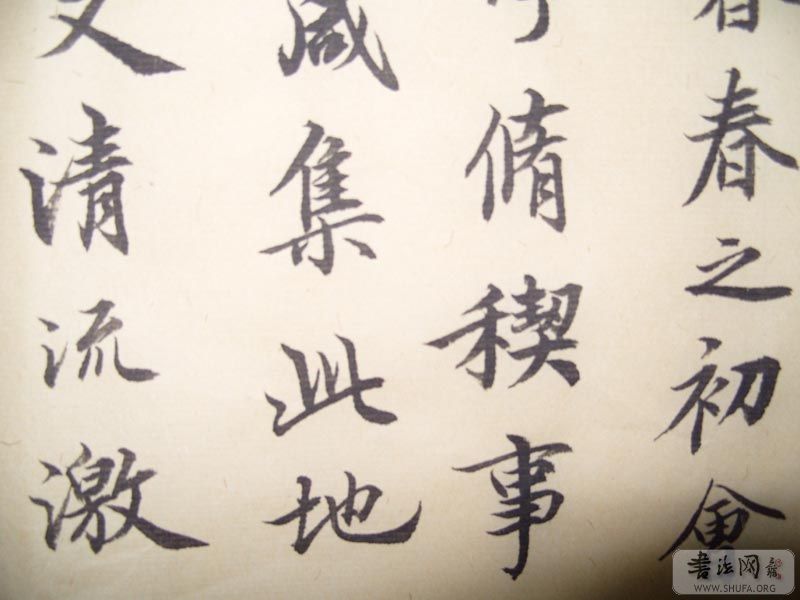 春之初會
脩稧事
咸集此地
又清流激
書法网
WWW.SHUFA.ORG